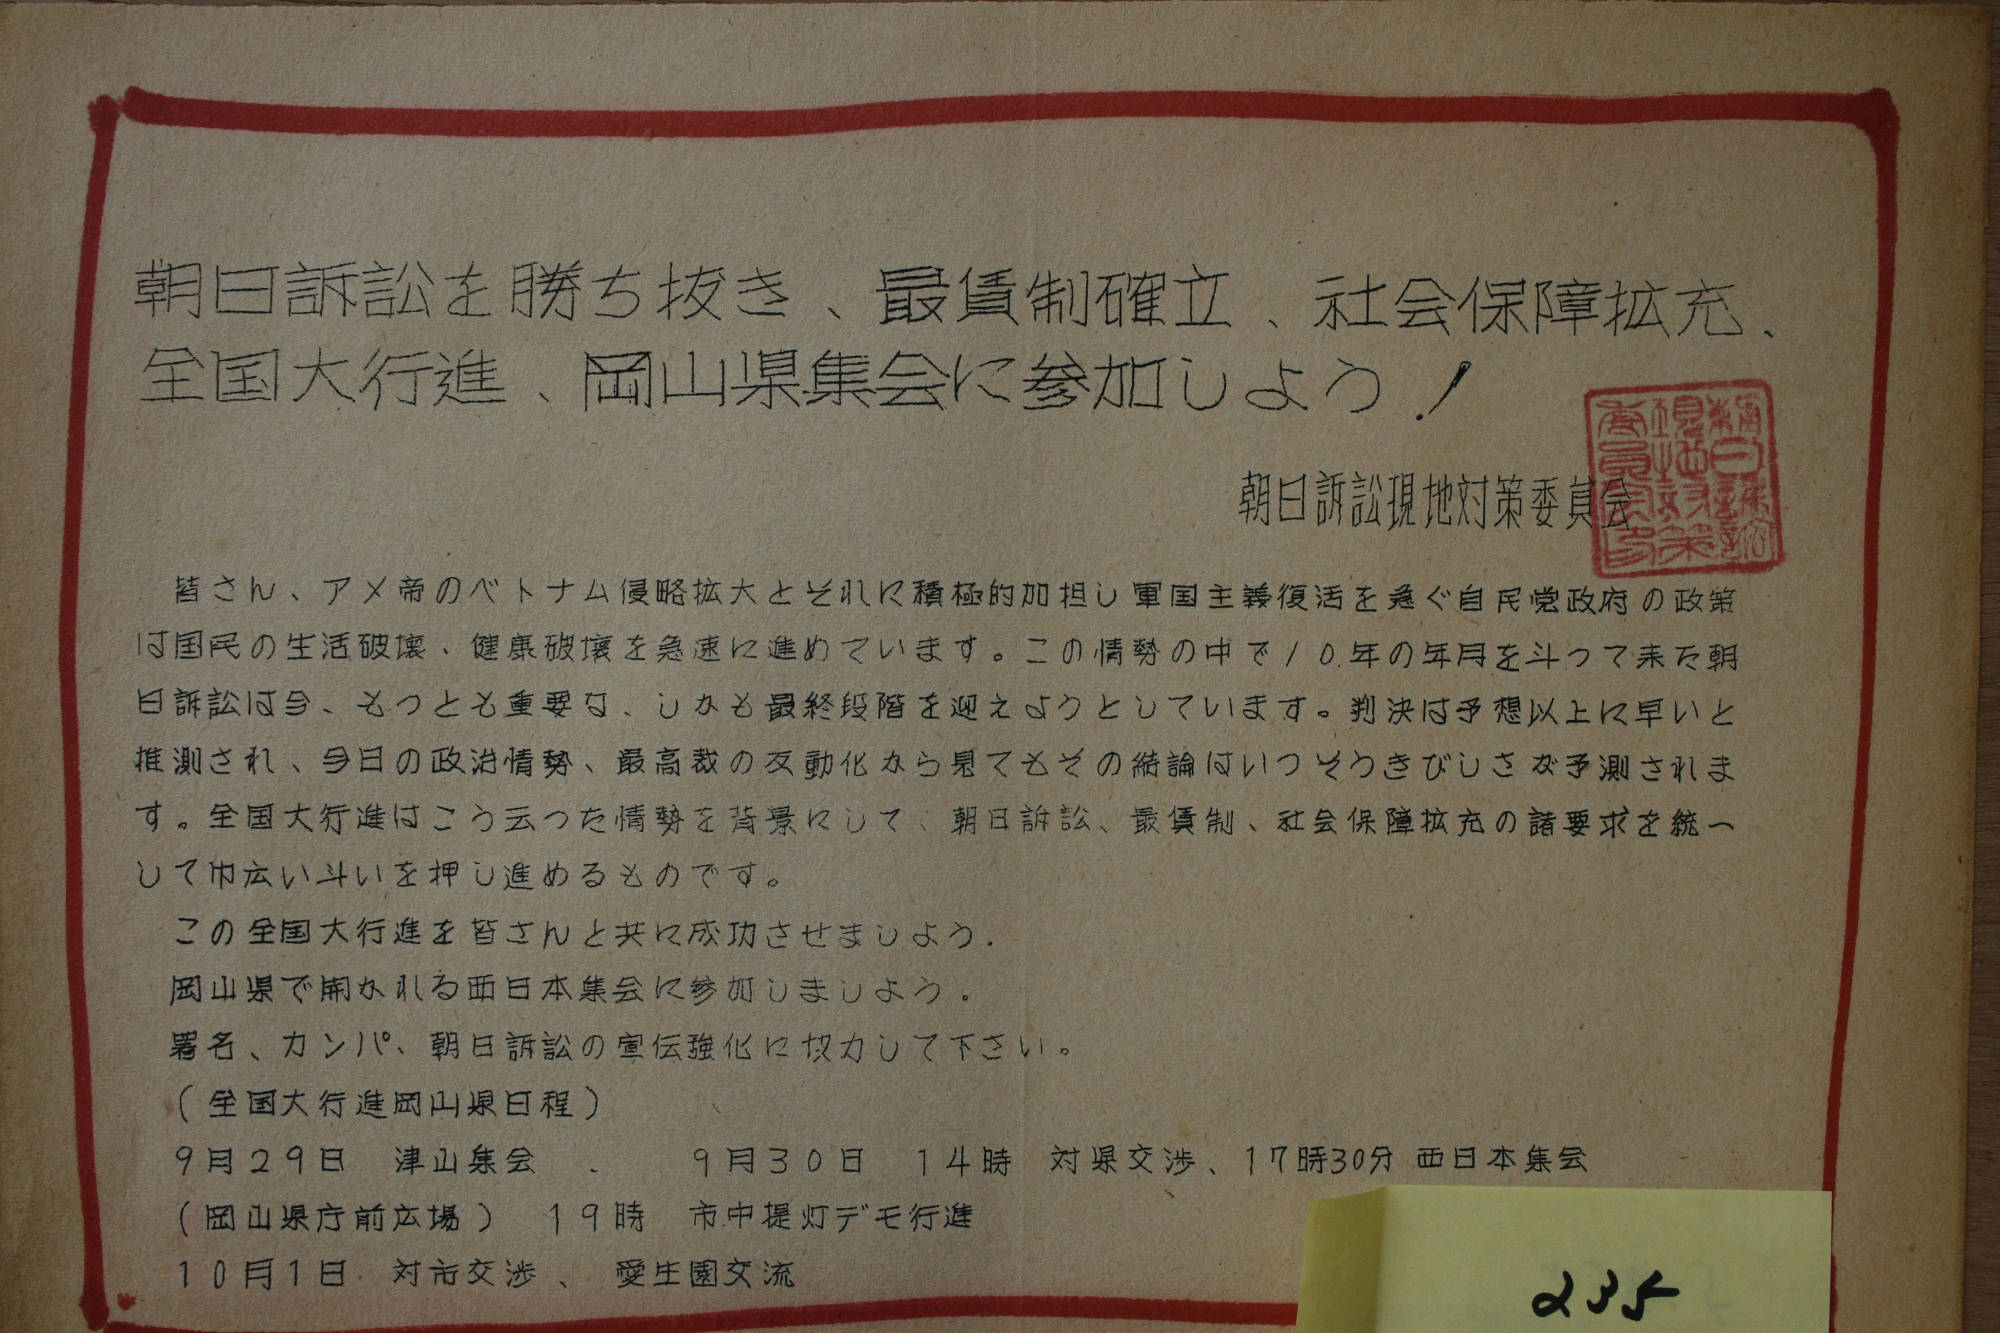 朝日訴訟を勝ち抜き、最賃制確立、社会保障拡充、
全国大行進、岡山県集会に参加しよう！
朝日訴訟現地対策委員会
皆さん、アメ帝のベトナム侵略拡大とそれに積極的加担し軍国主義復活を急ぐ自民党政府の政策
は国民の生活破壊、健康破壊を急速に進めています。この情勢の中で10年の年月を斗って来た朝
日訴訟は今、もつとも重要な、しかも最終段階を迎えようとしています。判決は予想以上に早いと
推測され、今日の政治情勢、最高裁の反動化から見てもその結論はいつそうきびしさが予測されま
す。全国大行進はこう云つた情勢を背景にして、朝日訴訟、最賃制、社会保障拡充の諸要求を統一
して巾広い斗いを押し進めるものです。
この全国大行進を皆さんと共に成功させましよう.
岡山県で開かれる西日本集会に参加しましよう.
署名、カンパ、朝日訴訟の宣伝強化に協力して下さい。
(全国大行進岡山県日程)
9月29日 津山集会 . 9月30日 14時 対県交渉、17時30分 西日本集会
(岡山県庁前広場) 19時 市中提灯デモ行進
10月1日 対市交渉、 愛生園交流
235